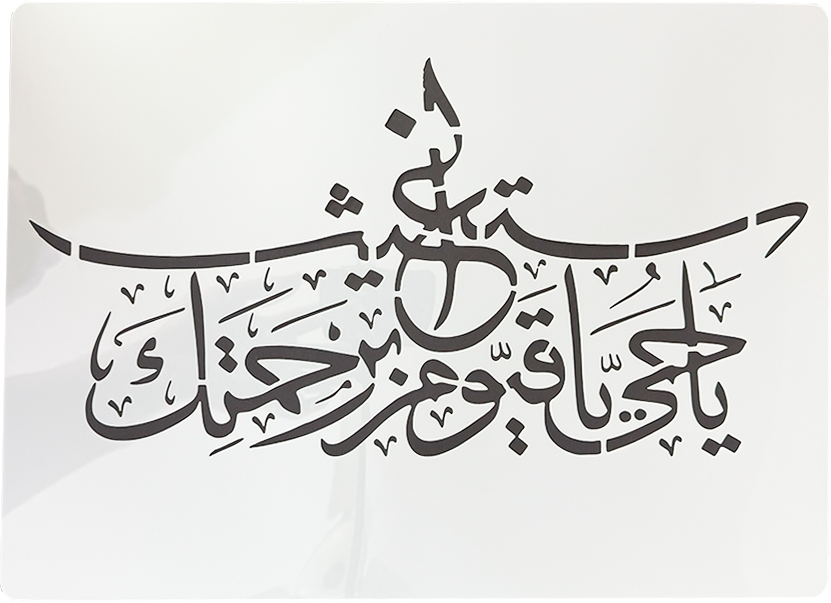 يا حي يا قيوم برحمتك
أستغيث